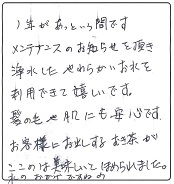 1年があっという間です
メンテナンスのお知らせを頂き
浄水したやわらかいお水を
利用できて嬉しいです。
髪の毛や肌にも安心です。
お客様にお出しするお茶が
ここのは美味しいとほめられました。
水のおかげですね